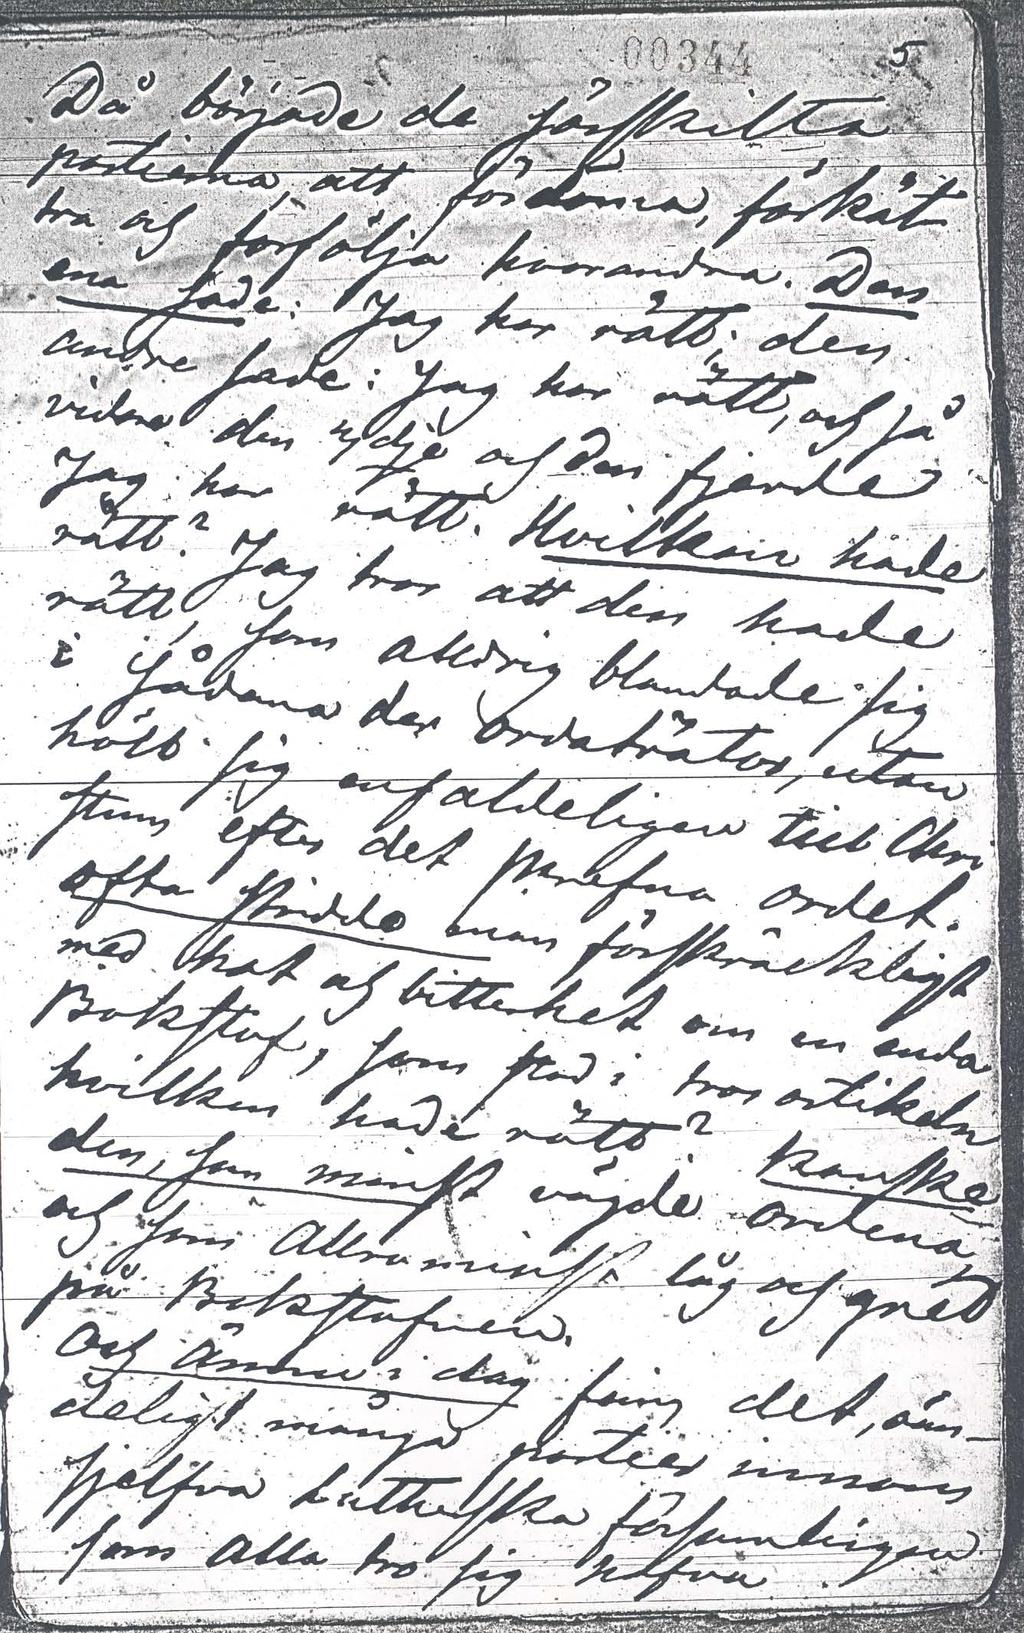 00344 5
Då började de särskilta
partierna, att fördöma, förkät
tra och förfölja hvarandra. Den
ena sade: Jag har rätt; den
andre sade: Jag har rätt, och så
vidare den 3dje och den fjerde
Jag har rätt. Hvilken hade
rätt? Jag tror att den hade
rätt, som alldrig blandade sig
i sådana der ordaträtor, utan
höll sig enfaldeligen till Chri
stum efter det skrefna ordet.
ofta stridde man förskräckligt
med hat och bitterhet om en enda
Bokstaf, som stod i tros artikeln
hvilken hade rätt? Kanske
den, som minst vägde ordena,
och som Allraminst låg och gned
på Bokstafven.
Och Ännu i dag fins det, oän-
deligt många partier innom
sjelfva Lutherska församlingen
som Alla tro sig hafva